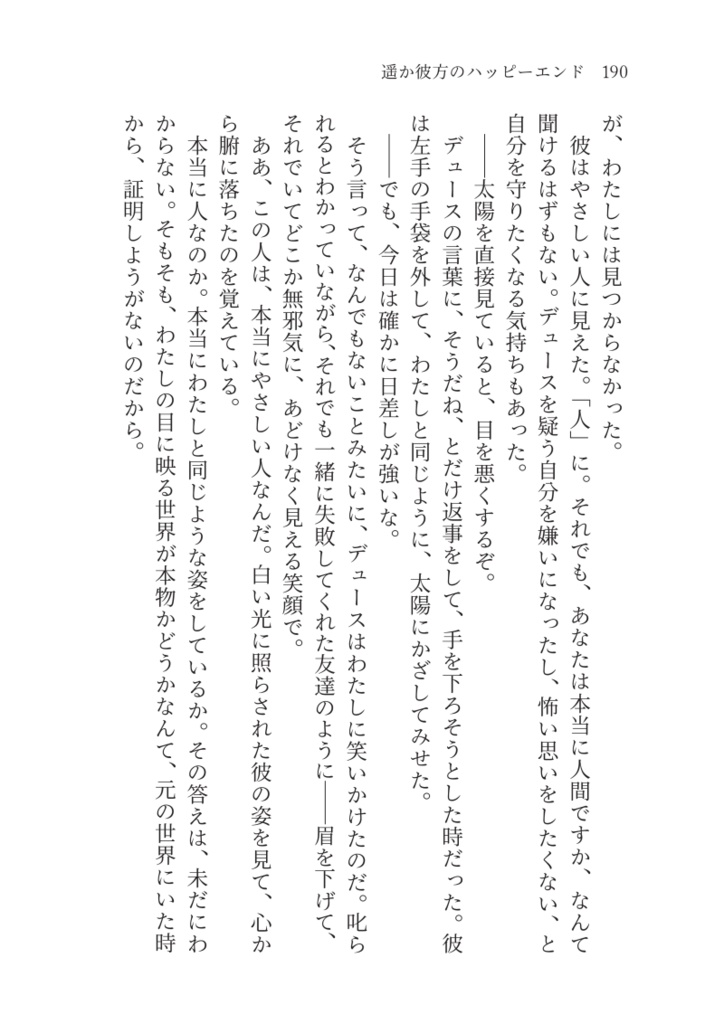 遥か彼方のハッピーエンド　190
が、わたしには見つからなかった。
　彼はやさしい人に見えた。「人」に。それでも、あなたは本当に人間ですか、なんて
聞けるはずもない。デュースを疑う自分を嫌いになったし、怖い思いをしたくない、と
自分を守りたくなる気持ちもあった。
　――太陽を直接見ていると、目を悪くするぞ。
　デュースの言葉に、そうだね、とだけ返事をして、手を下ろそうとした時だった。彼
は左手の手袋を外して、わたしと同じように、太陽にかざしてみせた。
　――でも、今日は確かに日差しが強いな。
　そう言って、なんでもないことみたいに、デュースはわたしに笑いかけたのだ。叱ら
れるとわかっていながら、それでも一緒に失敗してくれた友達のように――眉を下げて、
それでいてどこか無邪気に、あどけなく見える笑顔で。
　ああ、この人は、本当にやさしい人なんだ。白い光に照らされた彼の姿を見て、心か
ら腑に落ちたのを覚えている。
　本当に人なのか。本当にわたしと同じような姿をしているか。その答えは、未だにわ
からない。そもそも、わたしの目に映る世界が本物かどうかなんて、元の世界にいた時
から、証明しようがないのだから。